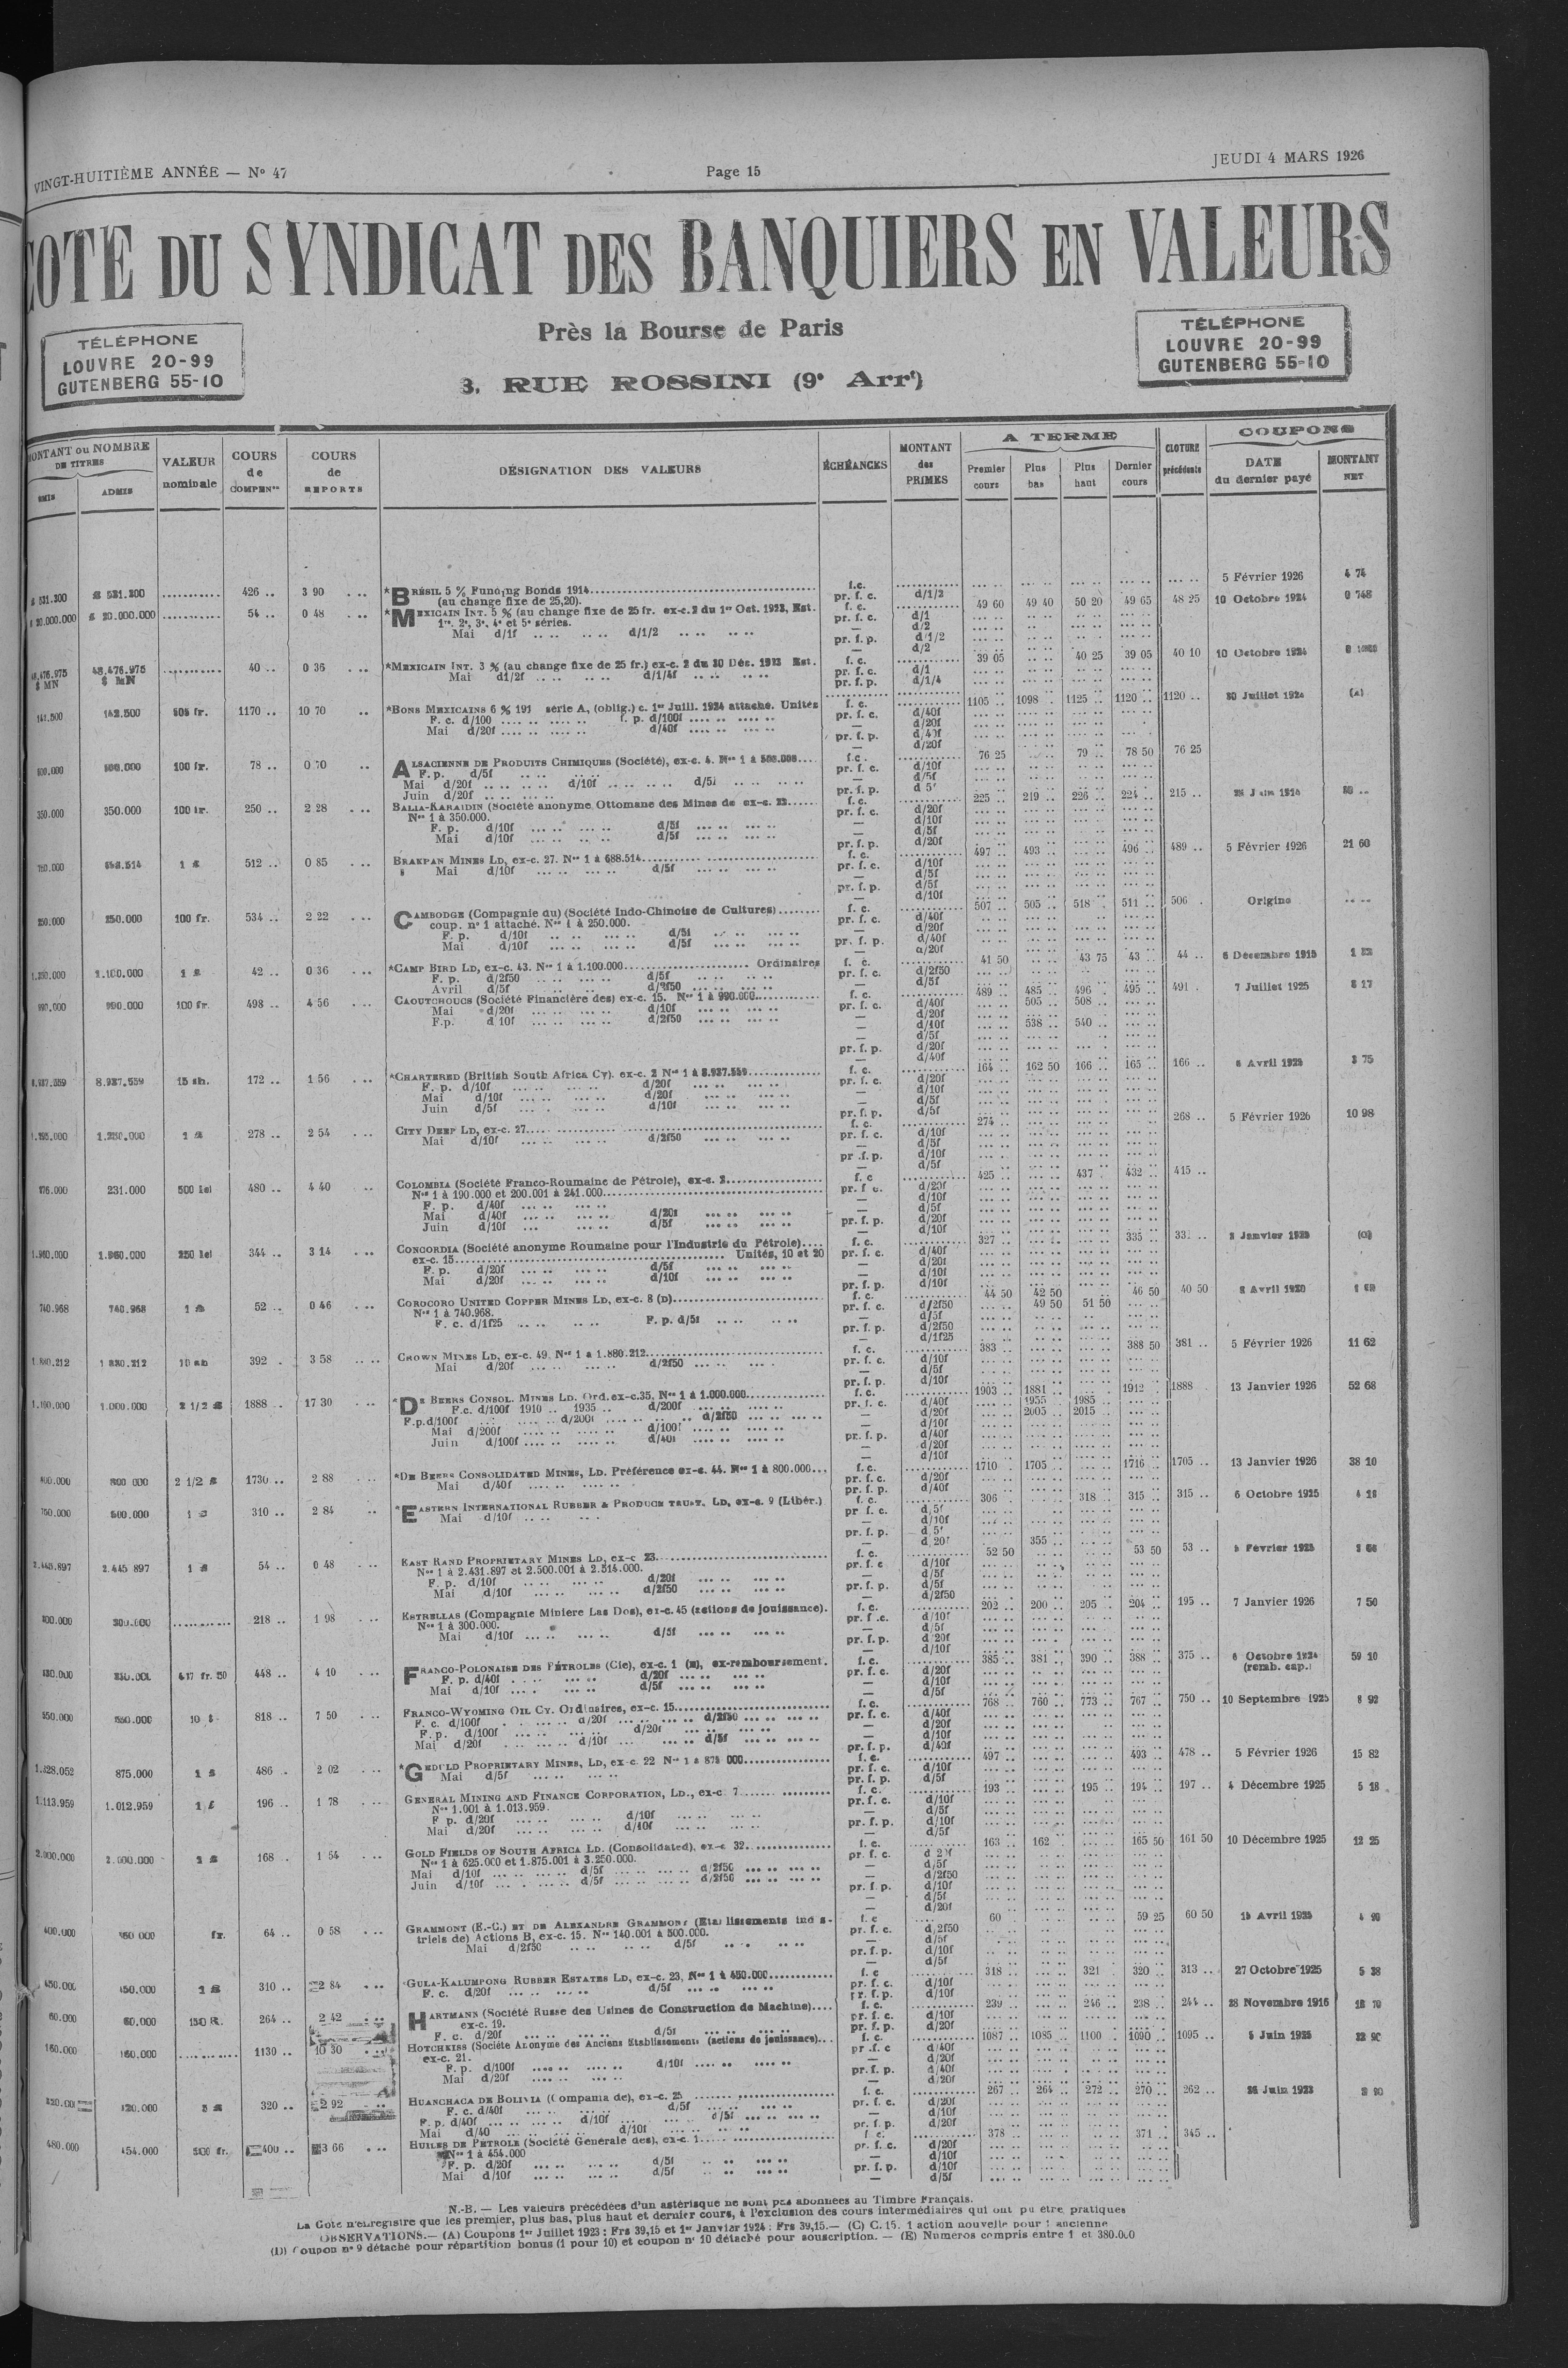 VINGT-HUITIÈME ANNÉE — N° 47
Page 15
JEUDI 4 MARS 1926
COTE DU SYNDICAT DES BANQUIERS EN VALEURS
TÉLÉPHONE
LOUVRE 20-99
GUTENBERG 55-10
Près la Bourse de Paris
3, RUE ROSSINI (9e Arrt)
TÉLÉPHONE
LOUVRE 20-99
GUTENBERG 55-10
MONTANT ou NOMBRE DE TITRES
ÉMIS ADMIS
VALEUR nominale
COURS de COMPENon
COURS de REPORTS
DÉSIGNATION DES VALEURS
ÉCHÉANCES
MONTANT des PRIMES
A TERME
Premier cours Plus bas Plus haut Dernier cours
CLOTURE précédente
COUPONS
DATE du dernier payé
MONTANT NET
£ 531.200 ........... 426 .. 3 90 *BRÉSIL 5 % Funding Bonds 1914 f.c. 5 Février 1926 4 74
(au change fixe de 25,20). pr. f. c. d/1/2
£ 20.000.000 £ 20.000.000 ........... 54 .. 0 48 *MEXICAIN INT. 5 % (au change fixe de 25 fr. ex-c. 2 du 1er Oct. 1923, Est. f. c. 49 60 49 40 50 20 49 65 48 25 10 Octobre 1924 0 748
1re, 2e, 3e, 4e et 5e séries. pr. f. c. d/1
Mai d/1f d/1/2 — d/2
pr. f. p. d/1/2
— d/2
48.476.975 $ MN 48.476.975 $ MN ........... 40 .. 0 36 *MEXICAIN INT. 3 % (au change fixe de 25 fr.) ex-c. 2 du 30 Déc. 1923 Est. f. c. 39 05 40 25 39 05 40 10 10 Octobre 1924
Mai d1/2f d/1/4f pr. f. c. d/1
pr. f. p. d/1/4
505 fr. 1170 .. 10 70 *BONS MEXICAINS 6 % 191 série A, (oblig.) c. 1er Juill. 1924 attaché. Unités f. c. 1105 .. 1098 . 1125 .. 1120 .. 1120 .. 30 Juillet 1924 (A)
F. c. d/100 f. p. d/100f pr. f. c. d/40f
Mai d/20f d/40f — d/20f
pr. f. p. d/40f
— d/20f
100 fr. 78 .. 0 70 ALSACIENNE DE PRODUITS CHIMIQUES (Société), ex-c. 4. f.c. 76 25 79 .. 78 50 76 25
F. p. d/5f pr. f. c. d/10f
Mai d/20f d/10f d/5f — d/5f
Juin d/20f pr. f. p. d 5f
350.000 350.000 100 fr. 250 .. 2 28 BALIA-KARAIDIN (Société anonyme Ottomane des Mines de ex-c. 22 f. c. 225 .. 219 .. 226 .. 224 .. 215 ..
Nos 1 à 350.000. pr. f. c. d/20f
F. p. d/10f d/5f — d/10f
Mai d/10f d/5f — d/5f
pr. f. p. d/20f
1 £ 512 .. 0 85 BRAKPAN MINES LD, ex-c. 27. Nos 1 à 688.514 f. c. 497 .. 493 .. 496 .. 489 .. 5 Février 1926 21 60
Mai d/10f d/5f pr. f. c. d/10f
— d/5f
pr. f. p. d/5f
— d/10f
250.000 250.000 100 fr. 534 .. 2 22 CAMBODGE (Compagnie du) (Société Indo-Chinoise de Cultures) f. c. 507 .. 505 .. 518 . 511 .. 506 . Origine
coup. n° 1 attaché. Nos 1 à 250.000. pr. f. c. d/40f
F. p. d/10f d/5f — d/20f
Mai d/10f d/5f pr. f. p. d/40f
— d/20f
1.100.000 1 £ 42 .. 0 36 *CAMP BIRD LD, ex-c. 43. Nos 1 à 1.100.000 Ordinaires f. c. 41 50 43 75 43 .. 44 .. 6 Décembre 1915
F. p. d/2f50 d/5f pr. f. c. d/2f50
Avril d/5f d/2f50 — d/5f
990.000 990.000 100 fr. 498 .. 4 56 CAOUTCHOUCS (Société Financière des) ex-c. 15. Nos 1 à 990.000 f. c. 489 .. 485 .. 496 .. 495 .. 491 . 7 Juillet 1925 8 17
Mai d/20f d/10f pr. f. c. d/40f 505 .. 508 ..
F.p. d 10f d/2f50 — d/20f
— d/10f 538 .. 540 ..
— d/5f
pr. f. p. d/20f
— d/40f
8.937.559 8.937.559 15 sh. 172 .. 1 56 *CHARTERED (British South Africa Cy). ex-c. 2 Nos 1 à 8.937.559 f. c. 164 .. 162 50 166 .. 165 .. 166 .. 3 75
F. p. d/10f d/20f pr. f. c. d/20f
Mai d/10f d/20f — d/10f
Juin d/5f d/10f — d/5f
pr. f. p. d/5f
1.250.000 1 £ 278 .. 2 54 CITY DEEP LD, ex-c. 27 f. c. 274 .. 268 .. 5 Février 1926 10 98
Mai d/10f d/2f50 pr. f. c. d/10f
— d/5f
pr .f. p. d/10f
— d/5f
231.000 500 lei 480 .. 4 40 COLOMBIA (Société Franco-Roumaine de Pétrole), ex-c. 2 f. c 425 .. 437 . 432 .. 415 ..
Nos 1 à 190.000 et 200.001 à 241.000 pr. f c. d/20f
F. p. d/40f — d/10f
Mai d/40f d/20f — d/5f
Juin d/10f d/5f pr. f. p. d/20f
— d/10f
1.960.000 1.960.000 250 lei 344 .. 3 14 CONCORDIA (Société anonyme Roumaine pour l'Industrie du Pétrole) f. c. 327 .. 335 .. (C)
ex-c. 15 Unités, 10 et 20 pr. f. c. d/40f
F. p. d/20f d/5f — d/20f
Mai d/20f d/10f — d/10f
pr. f. p. d/10f
740.968 740.968 1 £ 52 .. 0 46 COROCORO UNITED COPPER MINES LD, ex-c. 8 (D) f. c. 44 50 42 50 46 50 40 50 8 Avril 1920
Nos 1 à 740.968. pr. f. c. d/2f50 49 50 51 50
F. c. d/1f25 F. p. d/5f — d/5f
pr. f. p. d/2f50
— d/1f25
1.880.212 1 880.212 10 sh 392 . 3 58 CROWN MINES LD, ex-c. 49, Nos 1 à 1.880.212 f. c. 383 .. 388 50 381 .. 5 Février 1926 11 62
Mai d/20f d/2f50 pr. f. c. d/10f
— d/5f
pr. f. p. d/10f
1.000.000 2 1/2 £ 1888 .. 17 30 *DE BEERS CONSOL. MINES LD. Ord.ex-c.35. Nos 1 à 1.000.000 f. c. 1903 .. 1881 .. 1912 .. 1888 13 Janvier 1926 52 68
F.c. d/100f 1910 .. 1935 .. d/200f pr. f. c. d/40f 1955 1985 ..
F.p.d/100f d/200f d/2f50 — d/20f 2005 .. 2015 ..
Mai d/200f d/100f — d/10f
Juin d/100f d/40f pr. f. p. d/40f
— d/20f
— d/10f
800.000 800 000 2 1/2 £ 1730 .. 2 88 *DE BEERS CONSOLIDATED MINES, LD. Préférence ex-c. 44. Nos 1 à 800.000 f. c. 1710 .. 1705 .. 1716 .. 1705 .. 13 Janvier 1926 38 10
Mai d/40f pr. f. c. d/20f
pr. f. p. d/40f
1 £ 310 .. 2 84 *EASTERN INTERNATIONAL RUBBER & PRODUCE TRUST, LD, ex-c. 9 (Libér.) f. c. 306 . 318 .. 315 .. 315 .. 6 Octobre 1925
Mai d/10f pr f. c. d/5f
— d/10f
pr. f. p. d 5f
— d 20f 355 ..
2.445.897 2.445 897 1 £ 54 .. 0 48 EAST RAND PROPRIETARY MINES LD, ex-c 23 f. c. 52 50 53 50 53 ..
Nos 1 à 2.431.897 et 2.500.001 à 2.514.000. pr. f. c d/10f
F. p. d/10f d/20f — d/5f
Mai d/10f d/2f50 pr. f. p. d/5f
— d/2f50
300.000 300.000 ........... 218 .. 1 98 ESTRELLAS (Compagnie Minière Las Dos), ex-c. 45 (actions de jouissance). f. c. 202 .. 200 .. 205 .. 204 .. 195 .. 7 Janvier 1926 7 50
Nos 1 à 300.000. pr. f .c. d/10f
Mai d/10f d/5f — d/5f
pr. f. p. d 20f
— d/10f
417 fr. 50 448 .. 4 10 FRANCO-POLONAISE DES PÉTROLES (Cie), ex-c. 1 (E), ex-remboursement. f. c. 385 .. 381 .. 390 .. 388 .. 375 .. 6 Octobre 1924 59 10
F. p. d/40f d/20f pr. f. c. d/20f (remb. cap.)
Mai d/10f d/5f — d/10f
— d/5f
550.000 550.000 10 $ 818 .. 7 50 FRANCO-WYOMING OIL CY. Ordinaires, ex-c. 15 f. c. 768 .. 760 .. 773 .. 767 .. 750 .. 10 Septembre 1925 8 92
F. c. d/100f d/20f d/2f50 pr. f. c. d/40f
F. p. d/100f d/20f — d/20f
Mai d/20f d/10f d/5f — d/10f
pr. f. p. d/40f
875.000 1 £ 486 .. 2 02 *GEDULD PROPRIETARY MINES, LD, ex-c. 22 Nos 1 à 875 000 f. c. 497 .. 493 .. 478 .. 5 Février 1926 15 82
Mai d/5f pr. f. c. d/10f
pr. f. p. d/5f
1.113.959 1.012.959 1 £ 196 .. 1 78 GENERAL MINING AND FINANCE CORPORATION, LD., ex-c 7 f. c. 193 .. 195 .. 194 .. 197 .. 4 Décembre 1925 5 18
Nos 1.001 à 1.013.959. pr. f. c. d/10f
F p. d/20f d/10f — d/5f
Mai d/20f d/10f pr. f. p. d/10f
— d/5f
2.000.000 2.000.000 1 £ 168 . 1 54 GOLD FIELDS OF SOUTH AFRICA LD. (Consolidated), ex-c 32 f. c. 163 .. 162 165 50 161 50 10 Décembre 1925 12 25
Nos 1 à 625.000 et 1.875.001 à 3.250.000. pr. f. c. d 20f
Mai d/10f d/5f d/2f50 — d/5f
Juin d/10f d/5f d/2f50 — d/2f50
pr. f. p. d/10f
— d/5f
— d/20f
fr. 64 .. 0 58 GRAMMONT (E.-C.) ET DE ALEXANDRE GRAMMONT (Etablissements indus- f. c 60 59 25 60 50 15 Avril 1925
triels de) Actions B, ex-c. 15. Nos 140.001 à 500.000. pr. f. c. d/2f50
Mai d/2f50 d/5f — d/5f
pr. f. p. d/10f
— d/5f
450.000 450.000 1 £ 310 .. 2 84 GULA-KALUMPONG RUBBER ESTATES LD, ex-c. 23, Nos 1 à 450.000 f. c 318 .. 321 320 .. 313 .. 27 Octobre 1925 5 38
F. c. d/20f d/5f pr. f. c. d/10f
pr. f. p. d/10f
60.000 60.000 150 R. 264 .. 2 42 HARTMANN (Société Russe des Usines de Construction de Machine) f. c. 239 .. 246 .. 238 .. 244 .. 28 Novembre 1916
ex-c. 19. pr. f. c. d/10f
F. c. d/20f d/5f pr. f. p. d/20f
160.000 160.000 ........... 1130 .. 10 30 HOTCHKISS (Société Anonyme des Anciens Etablissements (actions de jouissance) f. c. 1087 .. 1085 .. 1100 .. 1090 .. 1095 .. 5 Juin 1925
ex-c. 21. pr .f. c d/40f
F. p. d/100f d/10f — d/20f
Mai d/20f pr. f. p. d/40f
— d/20f
320 .. 2 92 HUANCHACA DE BOLIVIA (Compania de), ex-c. 25 f. c. 267 .. 264 .. 272 .. 270 .. 262 ..
F. c. d/40f d/5f pr. f. c. d/20f
F. p. d/40f d/10f d/5f — d/10f
Mai d/40 d/10f pr. f. p. d/20f
480.000 454.000 500 fr. 400 .. 3 66 HUILES DE PETROLE (Société Générale des), ex-c. 1 f c. 378 .. 371 .. 345 ..
Nos 1 à 454.000 pr. f. c. d/20f
F. p. d/20f d/5f — d/10f
Mai d/10f d/5f pr. f. p. d/10f
— d/5f
N.-B. — Les valeurs précédées d'un astérisque ne sont pas abonnées au Timbre Français.
La Cote n'enregistre que les premier, plus bas, plus haut et dernier cours, à l'exclusion des cours intermédiaires qui ont pu être pratiqués
OBSERVATIONS.— (A) Coupons 1er Juillet 1923 : Frs 39,15 et 1er Janvier 1924 : Frs 39,15.— (C) C. 15. 1 action nouvelle pour 1 ancienne
(D) Coupon n° 9 détaché pour répartition bonus (1 pour 10) et coupon n° 10 détaché pour souscription. — (E) Numéros compris entre 1 et 380.000